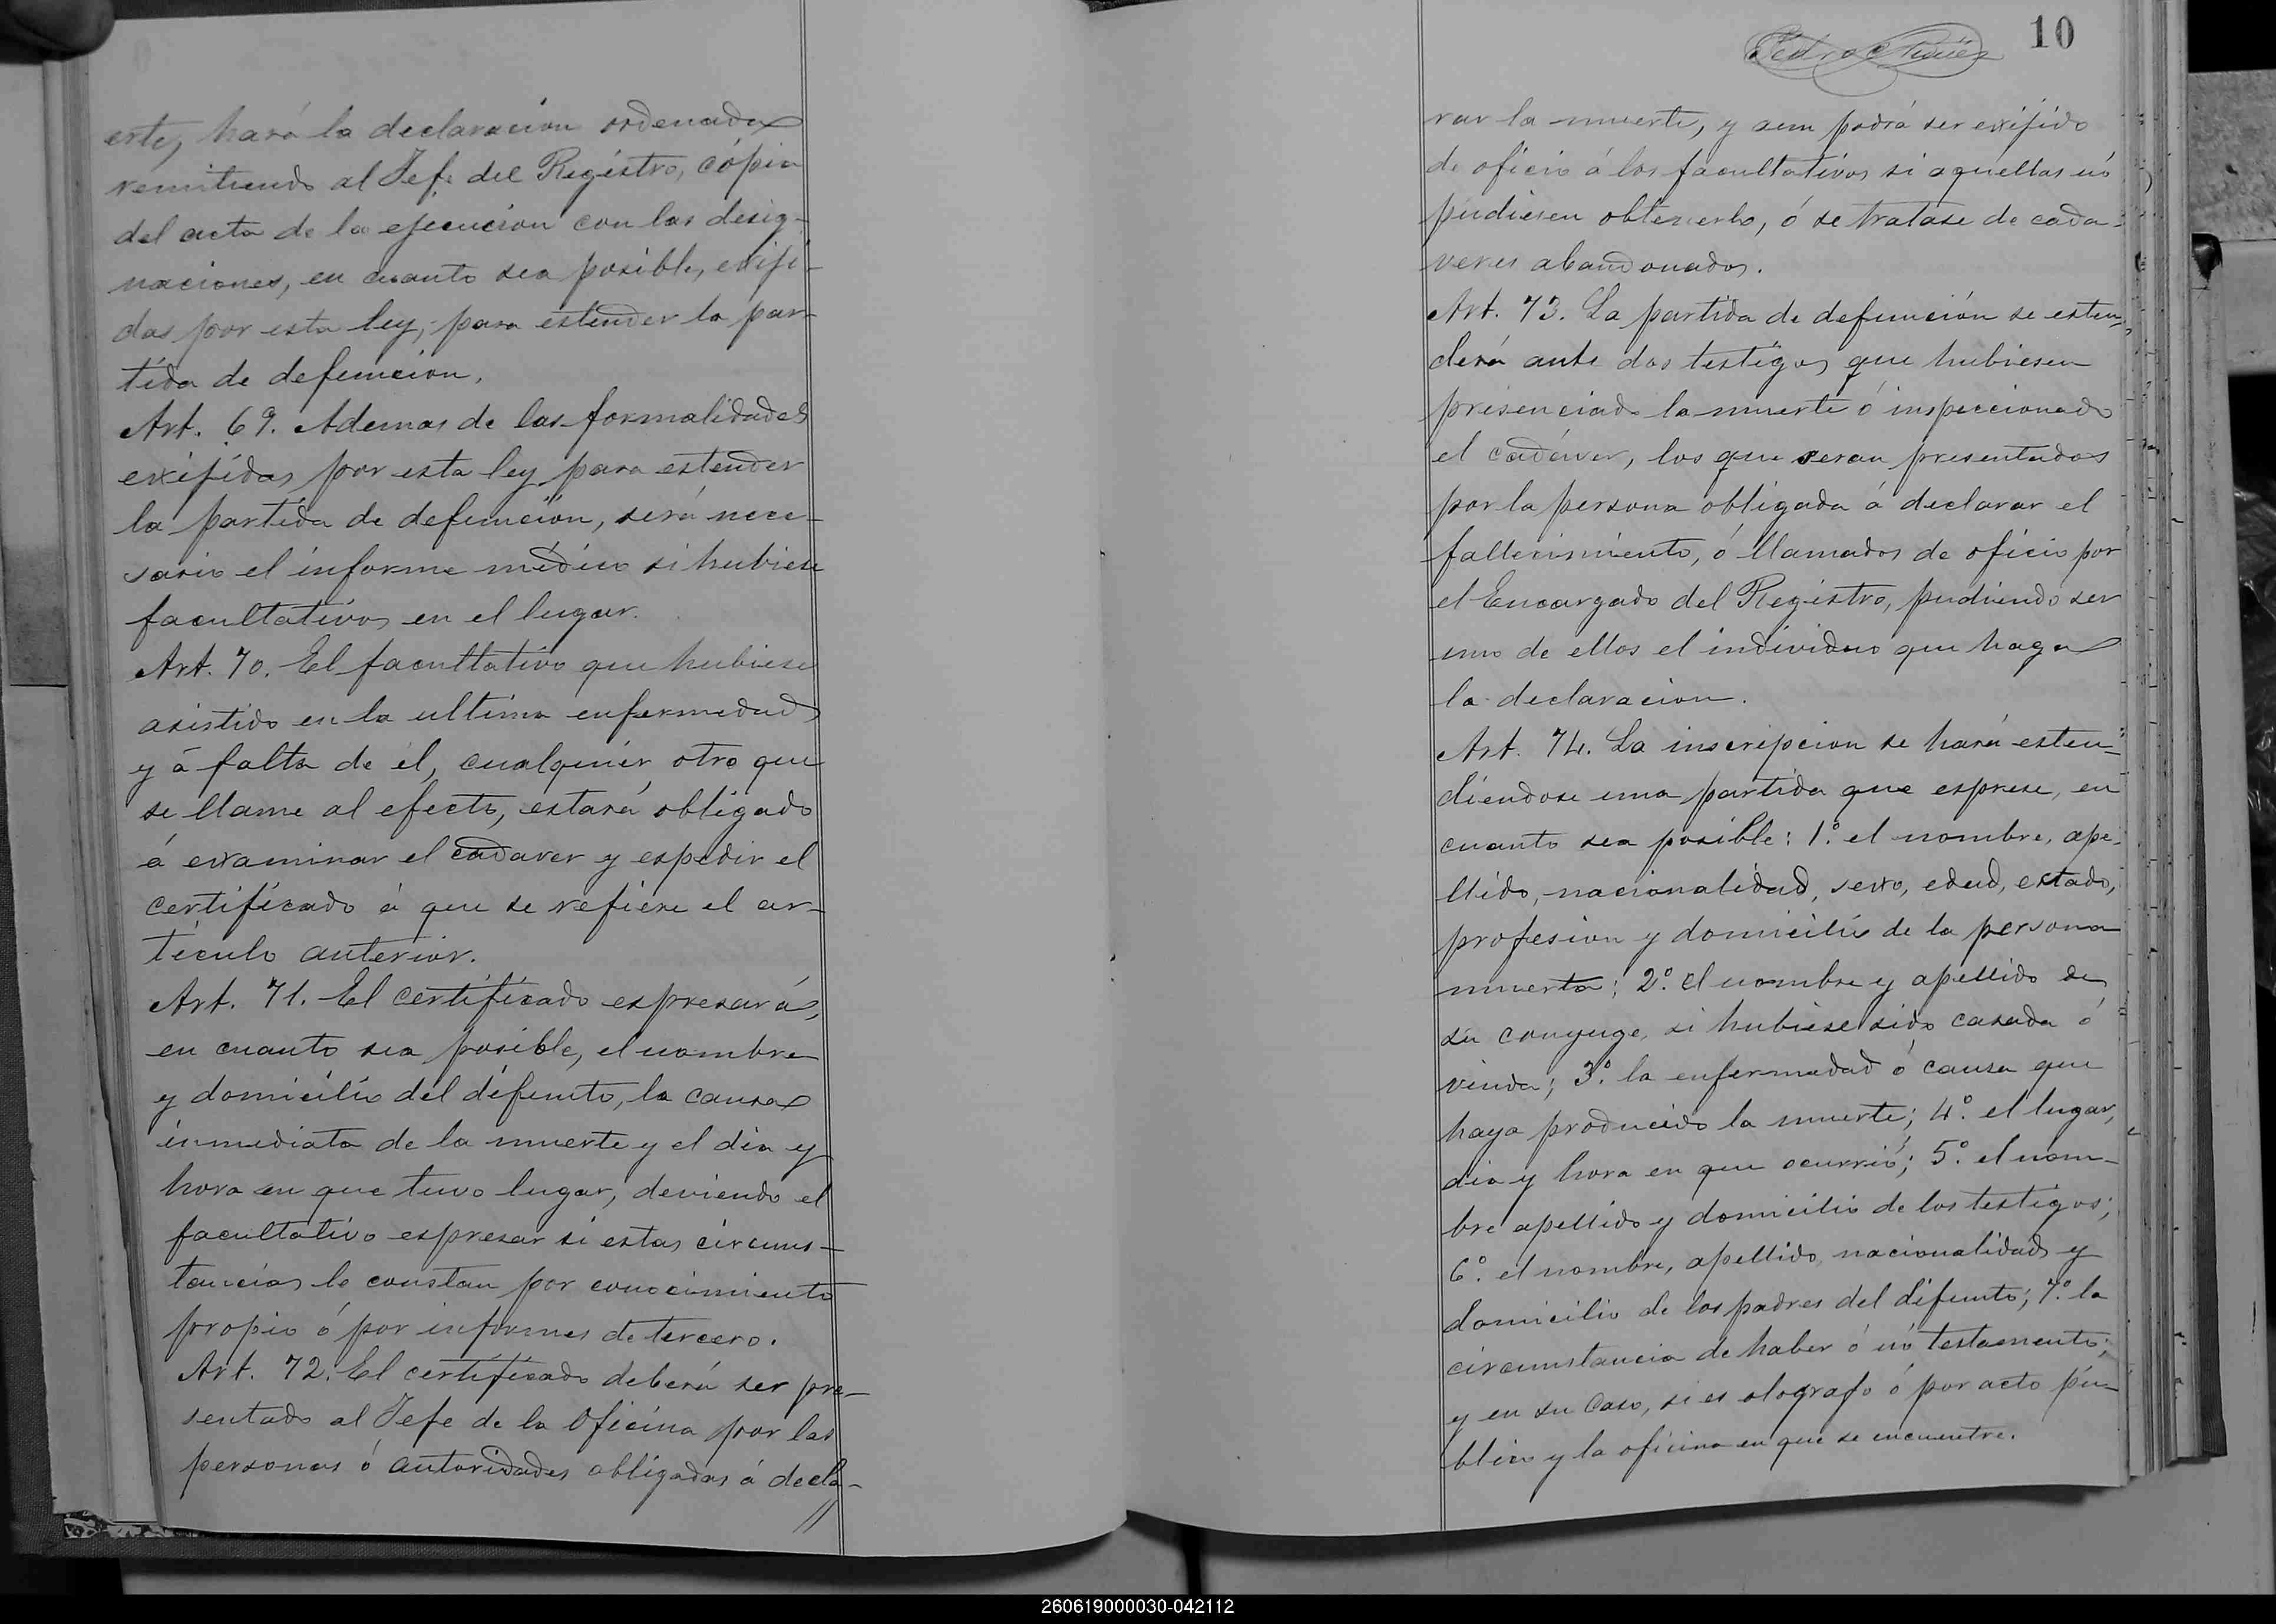 erte, hará la declaracion ordenada
remitiendo al Jefe del Registro, cópia
del acta de la ejecucion con las desig-
naciones, en cuanto sea posible, exiji-
das por esta ley, para estender la par-
tida de defuncion.
Art. 69. Ademas de las formalidades
exijidas por esta ley para estender
la partida de defuncion, será nece-
sario el informe médico si hubiese
facultativos en el lugar.
Art. 70. El facultativo que hubiese
asistido en la ultima enfermedad
y á falta de él, cualquiér otro que
se llame al efecto, estará obligado
á examinar el cadaver y espedir el
certificado á que se refiere el ar-
tículo anterior.
Art. 71. El certificado espresará,
en cuanto sea posible, el nombre
y domicilio del difunto, la causa
inmediata de la muerte y el dia y
hora en que tuvo lugar, deviendo el
facultativo espresar si estas circuns-
tancias le constan por conocimiento
propio ó por informes de tercero.
Art. 72. El certificado deberá ser pre-
sentado al Jefe de la Oficina por las
personas ó autoridades obligadas á decla-
10
rar la muerte, y aun podrá ser exijido
de oficio á los facultativos si aquellas nó
pudiesen obtenerlo, ó se tratase de cada-
veres abandonados.
Art. 73. La partida de defunción se esten-
derá ante dos testigos que hubiesen
presenciado la muerte ó inspeccionado
el cadáver, los que seran presentados
por la persona obligada á declarar el
fallecimiento, ó llamados de oficio por
el Encargado del Registro, pudiendo ser
uno de ellos el individuo que haga
la declaracion.
Art. 74. La inscripcion se hará esten-
diendose una partida que esprese, en
cuanto sea posible: 1º. el nombre, ape-
llido, nacionalidad, sexo, edad, estado,
profesion y domicilio de la persona
muerta; 2º. el nombre y apellido de
su conyuge, si hubiese sido casada ó
viuda; 3º. la enfermedad ó causa que
haya producido la muerte; 4º. el lugar,
dia y hora en que ocurrió; 5º. el nom-
bre apellido y domicilio de los testigos;
6º. el nombre, apellido, nacionalidad y
domicilio de los padres del difunto; 7º. la
circunstancia de haber ó nó testamento;
y en su caso, si es olografo ó por acto pú-
blico y la oficina en que se encuentre.
260619000030-042112